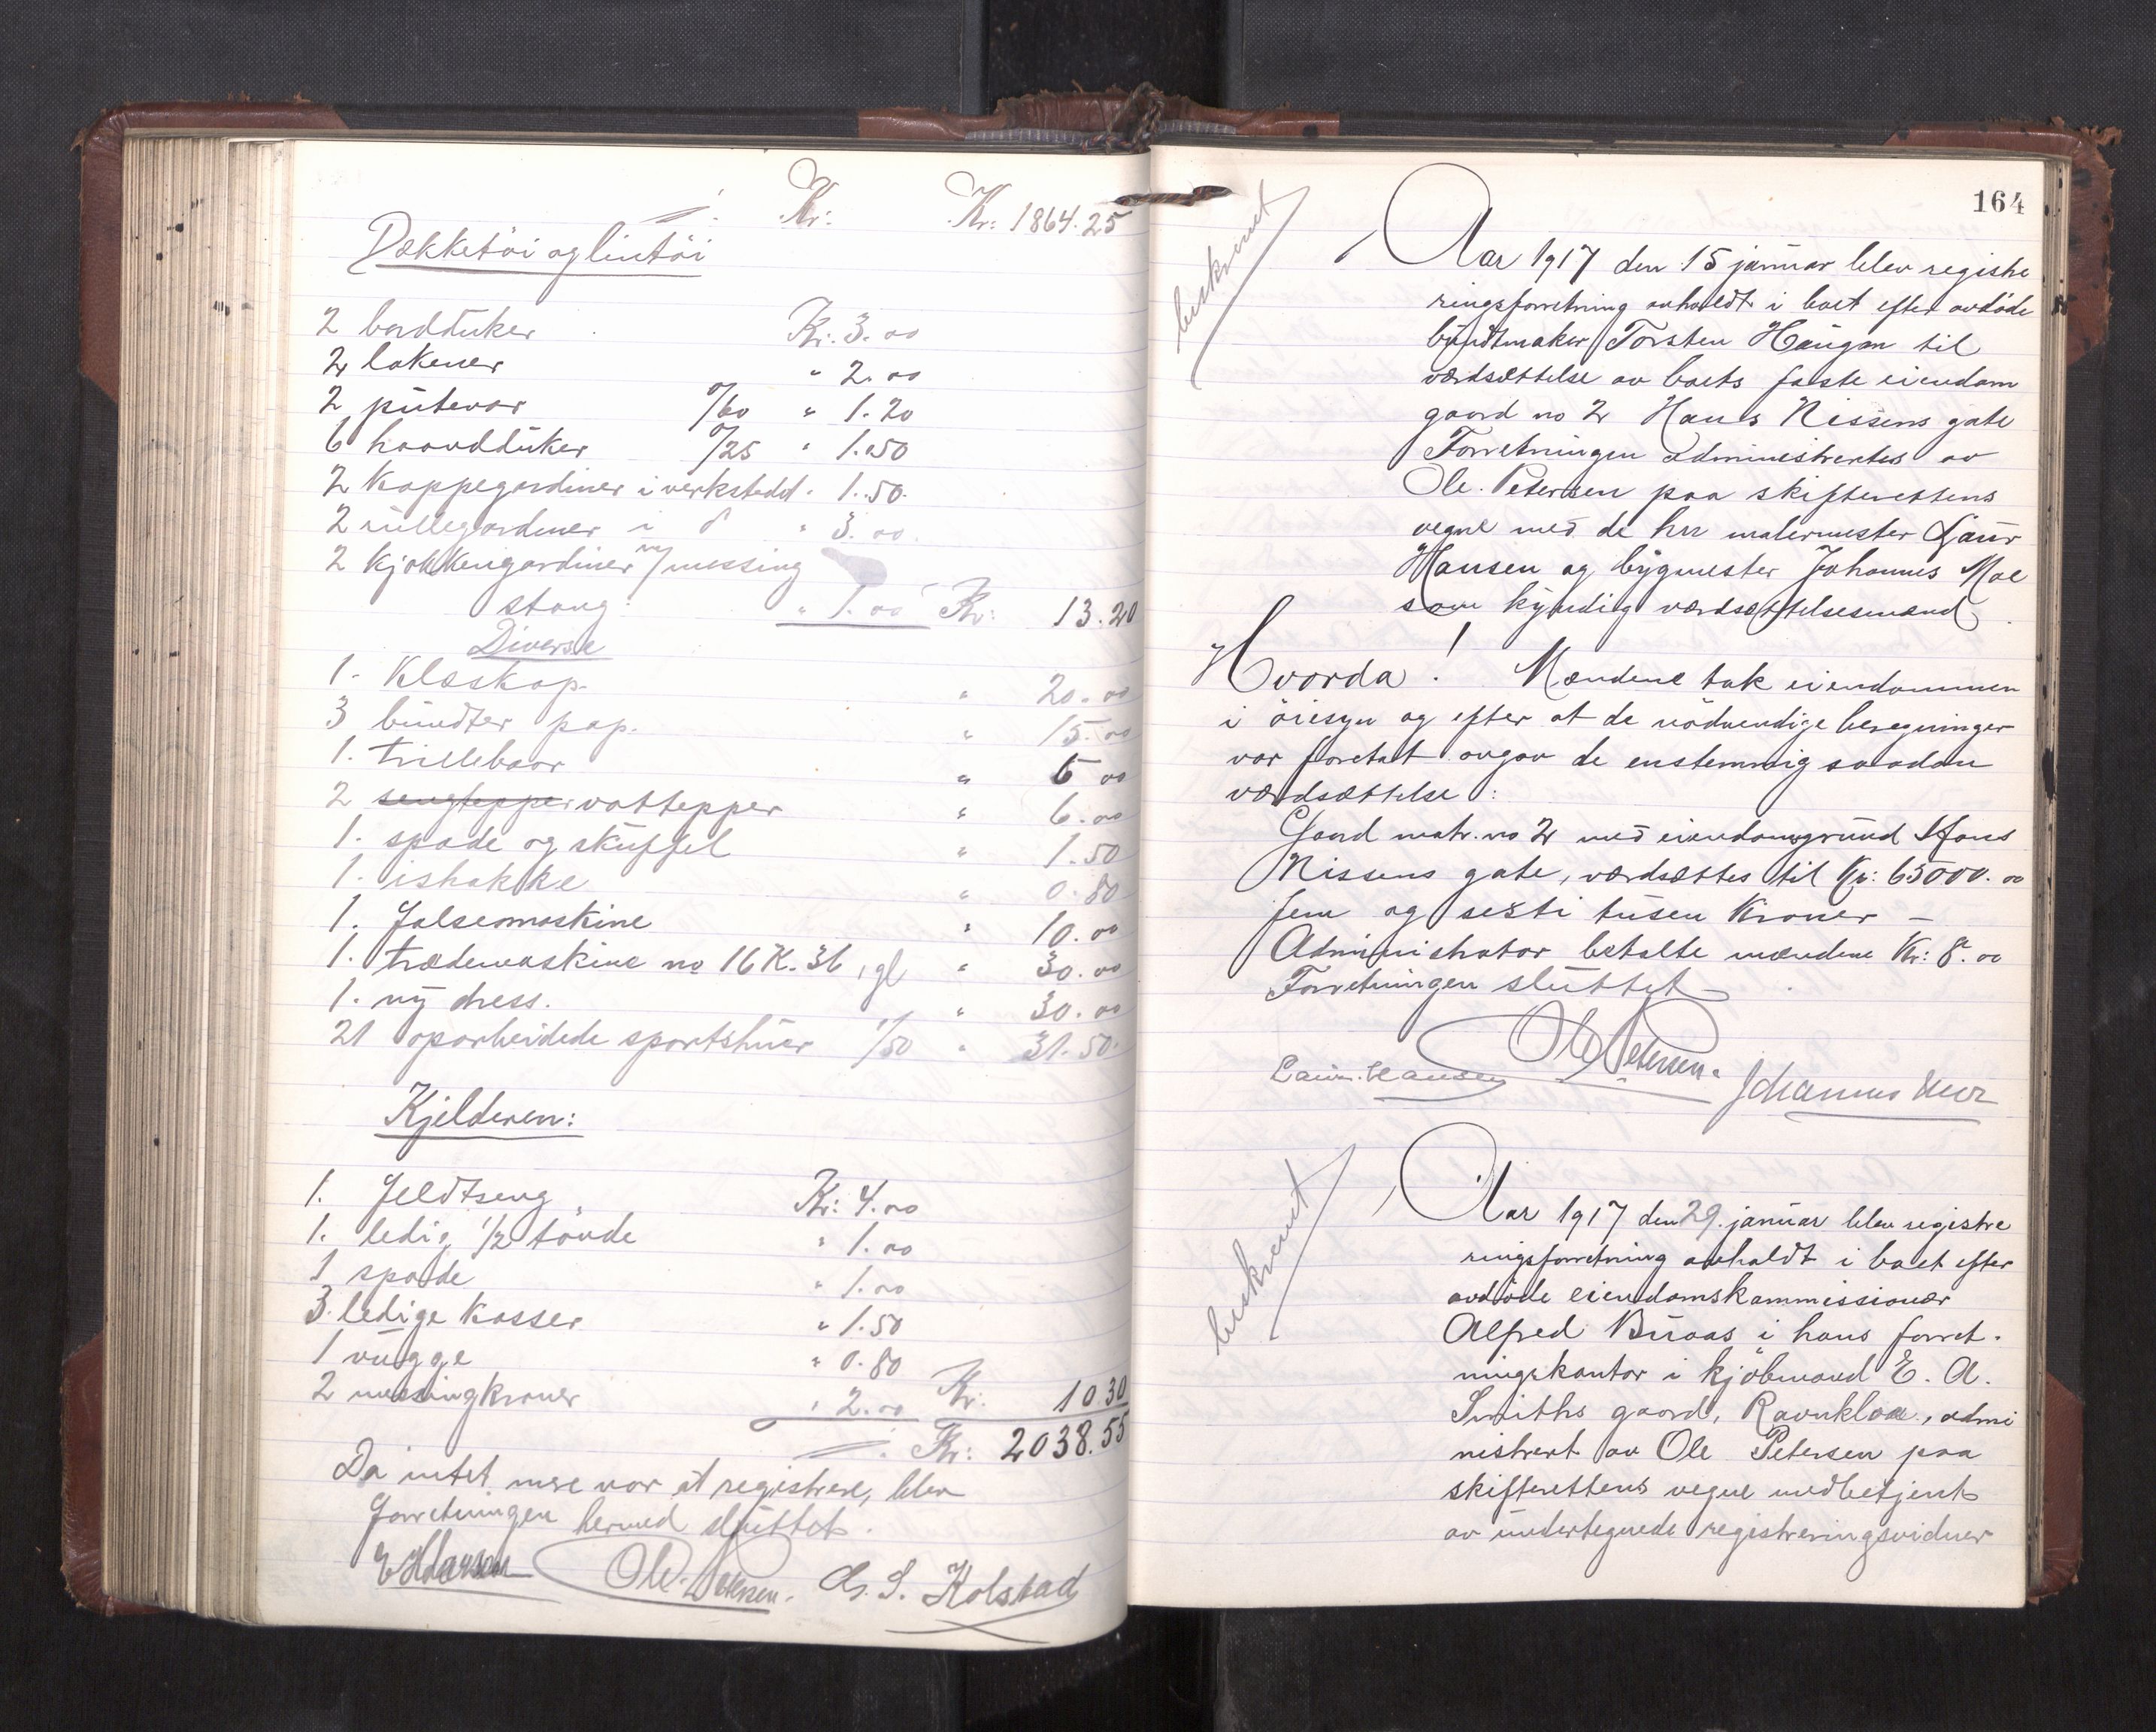 Kr: Kr: 1864.25
Dækketöi og lintöi
2 bordduker Kr: 3.00
2 lakener " 2.00
2 putevar 0/60 " 1.20
6 haandduker 0/25 " 1.50
2 Kappegardiner i verkstedet " 1.50.
2 rullegardiner i do " 3.00.
2 kjøkkengardiner m/messing
stang: " 1.00 Kr: 13.20
Diverse
1. Klæskap. " 20.00
3 bundter pap. " 15.00
1. trillebaar " 5 00
2 sengtepper vattepper " 6.00
1. spade og skuffel " 1.50
1. ishakke " 0.80
1. Falsemaskine " 10.00
1. trædemaskine no 16 K. 36, gl " 30.00
1. ny dress. " 30.00
21 oparbeidede sportshuer 1/50 " 31.50.
Kjelderen:
1. Feldtseng Kr: 4.00
1. ledig 1/2 tönde " 1.00
1 spade " 1.00
3. ledige Kasser " 1.50
1 vugge " 0.80
2 messingkroner " 2.00 Kr: 10.30
Kr: 2038.55
Da intet mere var at registrere, blev
forretningen hermed sluttet.
Ole Petersen. S. Kolstad
164
beskrevet
Aar 1917 den 15 januar blev registre
ringsforretning avholdt i boet efter avdöde
bundtmaker Torsten Haugan til
værdsættelse av boets faste eiendom
gaard no 2 Hans Nissens gate
Forretningen administrertes av
Ole Petersen paa skifterettens
vegne med de hrr malermester Laur
Hansen og bygmester Johannes Moe
som kyndig værdsættelsesmænd.
Hvorda! Mændene tok eiendommen
i öiesyn og efter at de nödvendige beregninger
var foretat avgav de enstemmig saadan
værdsættelse:
Gaard matr. no 2 med eiendomsgrund Hans
Nissens gate, værdsættes til Kr: 65000.00
fem og sexti tusen Kroner –
Administrator betalte mændene Kr: 8.00
Forretningen sluttet
Ole Petersen.
Laur. Hansen Johannes Moe
beskrevet
Aar 1917 den 29. januar blev registre
ringsforretning avholdt i boet efter
avdöde eiendomskommissionær
Alfred Buaas i hans forret-
ningskontor i kjöbmand E. A.
Smiths gaard, Ravnkloa, admi
nistrert av Ole Petersen paa
skifterettens vegne medbetjent
av undertegnede registreringsvidner